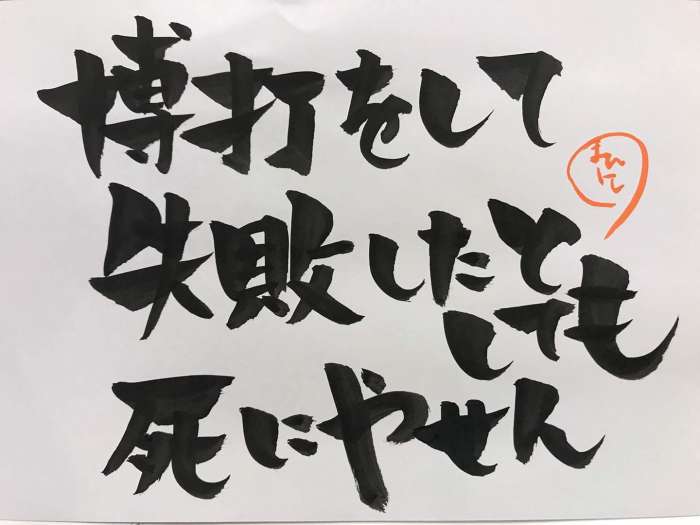 博打をして
失敗したと
しても
死にやせん
まひ
にし